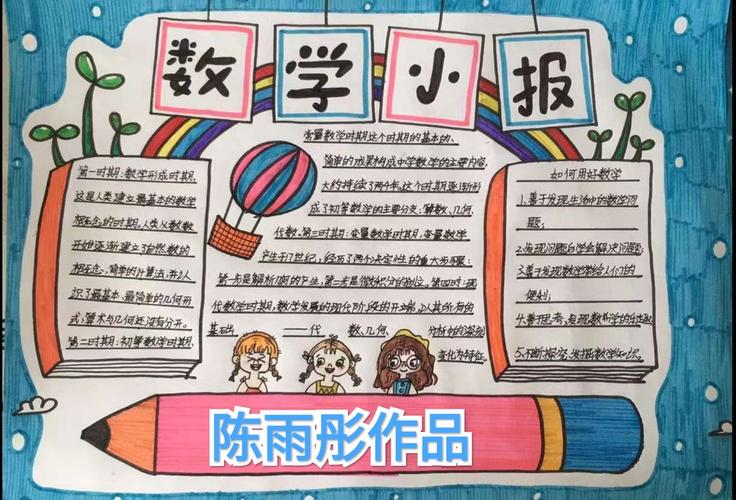 数学小报
第一时期:数学形成时期,
这是人类建立最基本的数学
概念的时期。人类从数数
开始逐渐建立自然数的
概念、简单的计算法,并认
识了最基本、最简单的几何形
式,算术与几何还没有分开。
第二时期:初等数学时期、
变量数学时期这个时期的基本的、
简单的成果构成中学数学的主要内容,
大约持续了两千年。这个时期逐渐形
成了初等数学的主要分支:算数、几何、
代数。第三时期:变量数学时期。变量数学
产生于17世纪,经历了两个决定性的重大步骤:
第一步是解析几何的产生,第二步是微积分的创立。第四时:现
代数学时期,数学发展的现代阶段的开端,以其所有的
基础——代 数、几何、 分析中的深刻
变化为特征。
如何用好数学
1.善于发现生活中的数学问
题;
2.发现问题自学会解决问题;
3.善于发现数学带给人们的
便利;
4.善于思考,发现数学的
5.不断探究,发掘数学知识。
陈雨彤作品